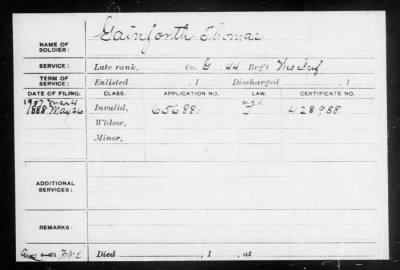 Gainforth Thomas
NAME OF
SOLDIER:
SERVICE: Late rank, Co. G. 44 Reg't Wis Inf
TERM OF
SERVICE: Enlisted , 1 Discharged , 1
DATE OF FILING. CLASS. APPLICATION NO. LAW. CERTIFICATE NO.
1907 Mar 4 age
1888 May 26 Invalid, 656881 J 428988
Widow,
Minor,
ADDITIONAL
SERVICES:
REMARKS:
Died , 1 , at